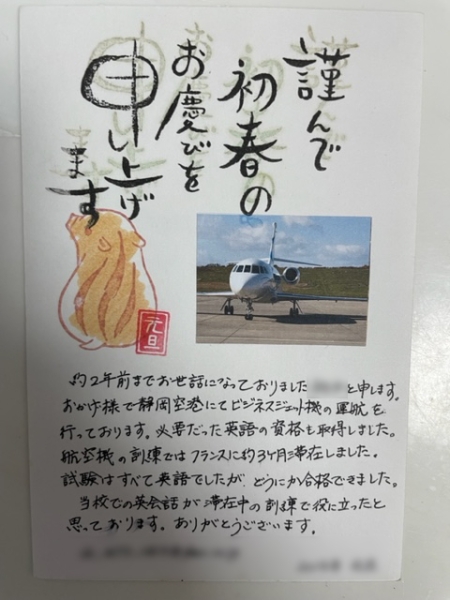 謹んで
初春の
お慶びを
申し上げ
ます
元旦
約2年前までお世話になっておりました と申します。
おかげ様で静岡空港にてビジネスジェット機の運航を
行っております。必要だった英語の資格も取得しました。
航空機の訓練ではフランスに約3ヶ月滞在しました。
試験はすべて英語でしたが、どうにか合格できました。
当校での英会話が滞在中の訓練で役に立ったと
思っております。ありがとうございます。